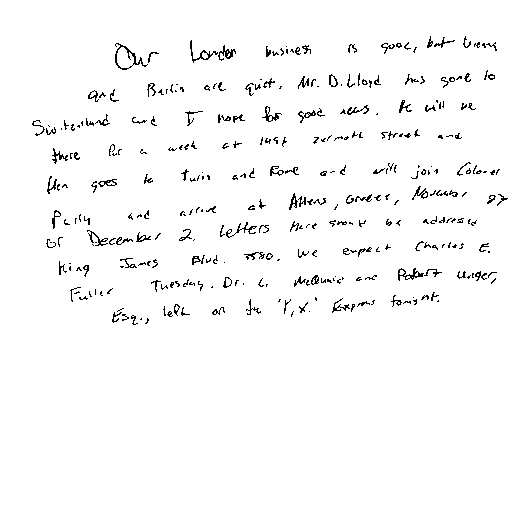 Our London business is good, but Vienna
and Berlin are quiet. Mr. D. Lloyd has gone to
Switzerland and I hope for good news. He will be
there for a week at 1496 Zermott Street and
then goes to Turin and Rome and will join Colonel
Parry and arrive at Athens, Greece, November 27
or December 2. Letters there should be addressed
King James Blvd. 3580. We expect Charles E.
Fuller Tuesday. Dr. L. McQuaid and Robert Unger,
Esq., left on the 'Y.X.' Express tonight.